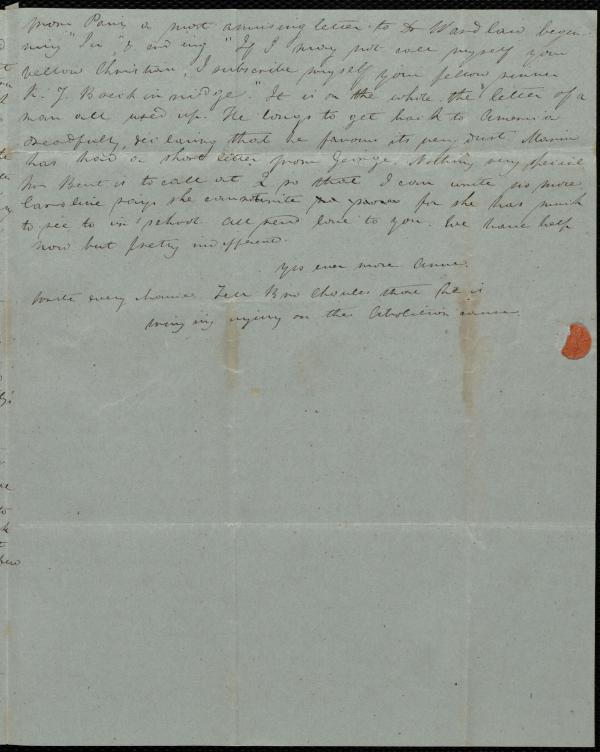 from Paris a most amusing letter to Dr Wardlaw begin
ning "Sir," & ending "If I may not call myself your
fellow Christian, I subscribe myself your fellow sinner
R. J. Breckinridge." It is on the whole the letter of a
man all used up. He longs to get back to America
dreadfully, declaring that he favours its very dust Maria
has had a short letter from George. Nothing very special
Mr Bent is to call at 2 so that I can write no more
Caroline says she cannot write for she has much
to see to in school. All send love to you. We have help
now but pretty indifferent.
Yrs ever more Anne.
Write every chance Tell Bro Choules that he is
injury on the Abolition cause